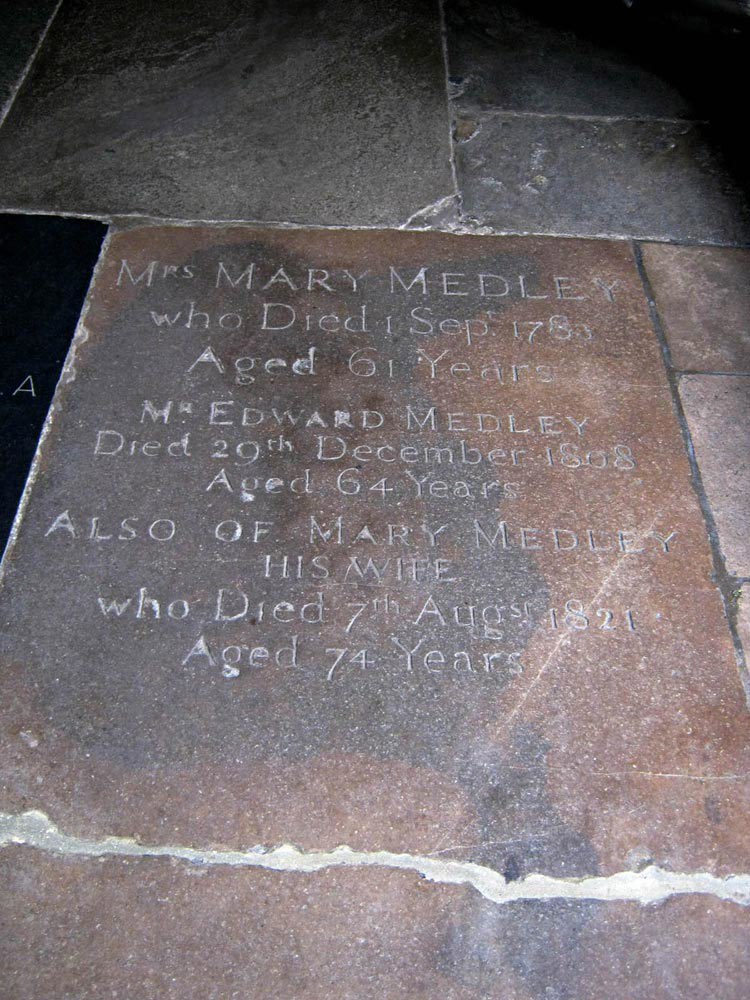 Mrs MARY MEDLEY
who Died 1 Sep. 1783
Aged 61 Years
MR EDWARD MEDLEY
Died 29th December 1808
Aged 64 Years
ALSO OF MARY MEDLEY
HIS WIFE
who Died 7th Augst 1821
Aged 74 Years
A